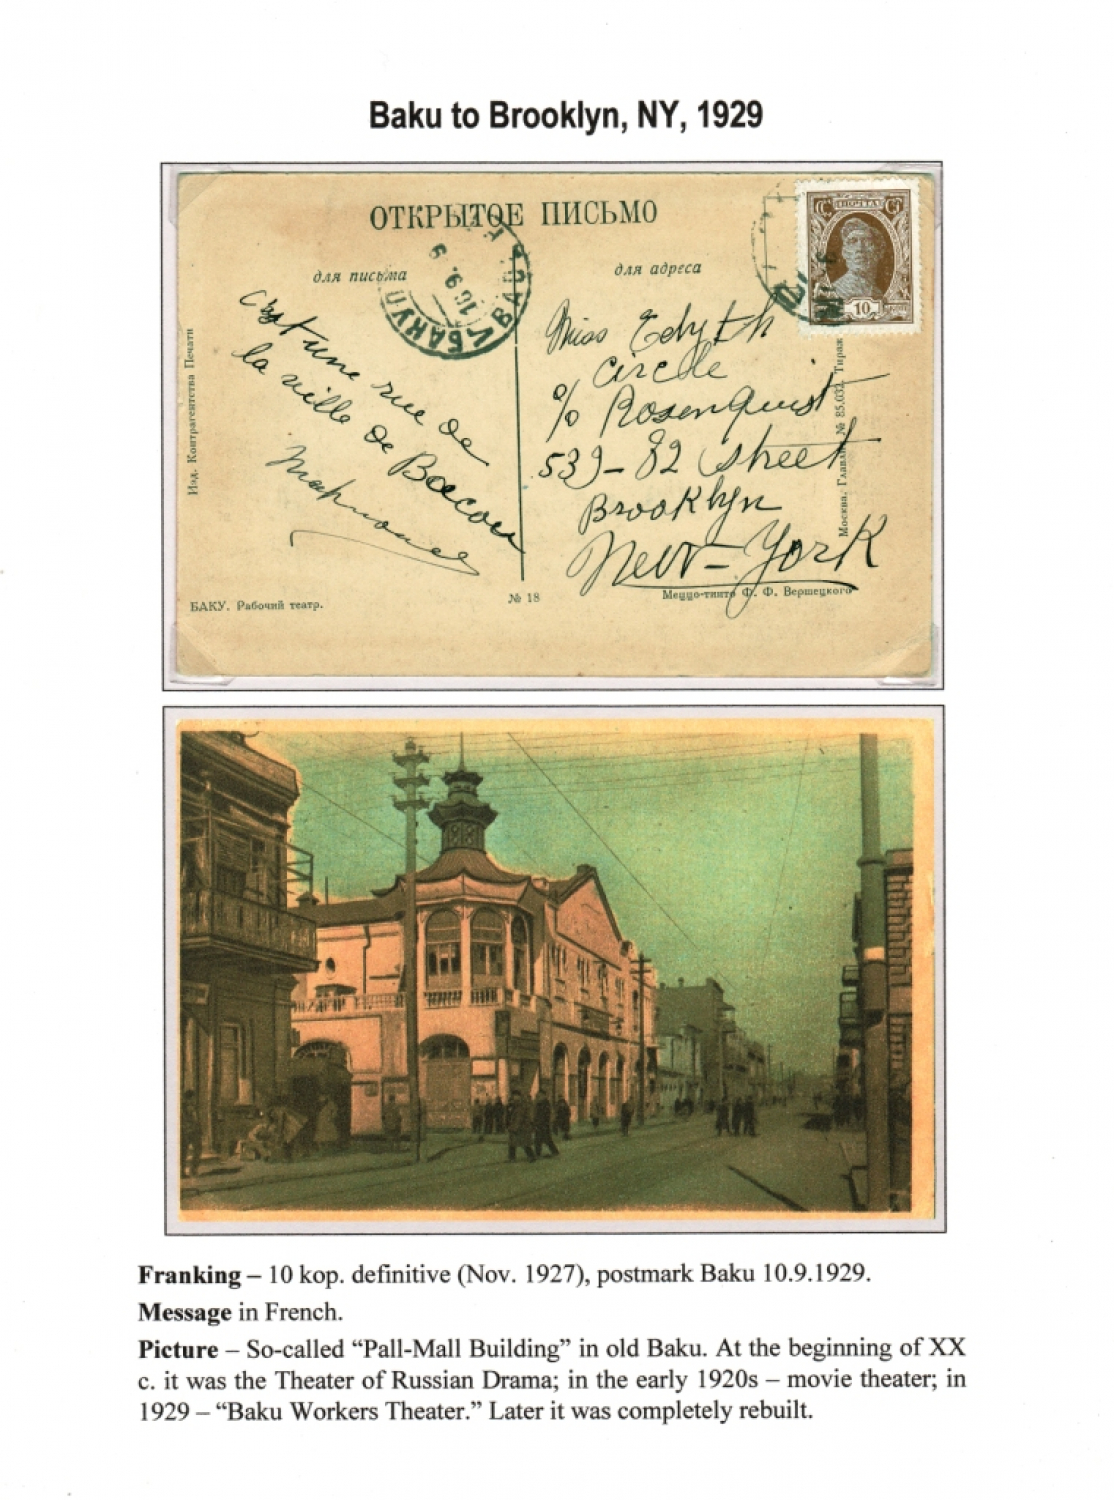 Baku to Brooklyn, NY, 1929
ОТКРЫТОЕ ПИСЬМО
для письма
для адреса
ПОЧТА
10
БАКУ
C'est une rue de
la ville de Bacou
Miss Edyth
Circle
c/o Rosenquist
539-82 street
Brooklyn
New-York
Изд. Контрагентства Печати
Москва. Главлит № 85.032. Тираж
БАКУ. Рабочий театр.
№ 18
Меццо-тинто Ф. Ф. Вершецкого
Franking – 10 kop. definitive (Nov. 1927), postmark Baku 10.9.1929.
Message in French.
Picture – So-called “Pall-Mall Building” in old Baku. At the beginning of XX
c. it was the Theater of Russian Drama; in the early 1920s – movie theater; in
1929 – “Baku Workers Theater.” Later it was completely rebuilt.